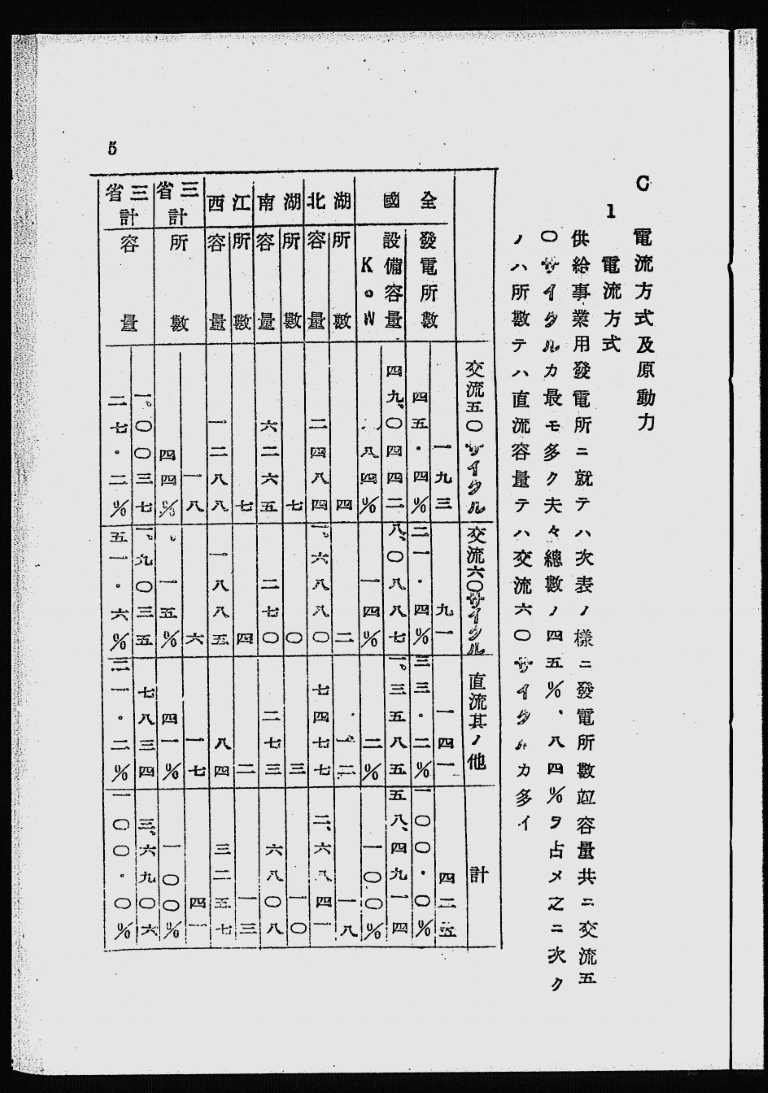 C 電流方式及原動力
1 電流方式
供給事業用發電所ニ就テハ次表ノ樣ニ發電所數竝容量共ニ交流五
〇サイクルカ最モ多ク夫々總數ノ四五%、八四%ヲ占メ之ニ次ク
ノハ所數テハ直流容量テハ交流六〇サイクルカ多イ
交流五〇サイクル 交流六〇サイクル 直流其ノ他 計
全國 發電所數 一九三 九一 一四一 四二五
四五・四% 二一・四% 三三・二% 一〇〇・〇%
設備容量 K。W 四九、〇四四二 八、〇八八七 一、三五八五 五八、四九一四
八四% 一四% 二% 一〇〇%
湖北 所數 四 二 一二 一八
容量 二四八四 一、六八八〇 七四七七 二、六八四一
湖南 所數 七 〇 三 一〇
容量 六二六五 二七〇 二七三 六八〇八
江西 所數 七 四 二 一三
容量 一二八八 一八八五 八四 三二五七
三省計 所數 一八 六 一七 四一
四四% 一五% 四一% 一〇〇%
三省計 容量 一、〇〇三七 一、九〇三五 七八三四 三、六九〇六
二七・二% 五一・六% 二一・二% 一〇〇・〇%
5